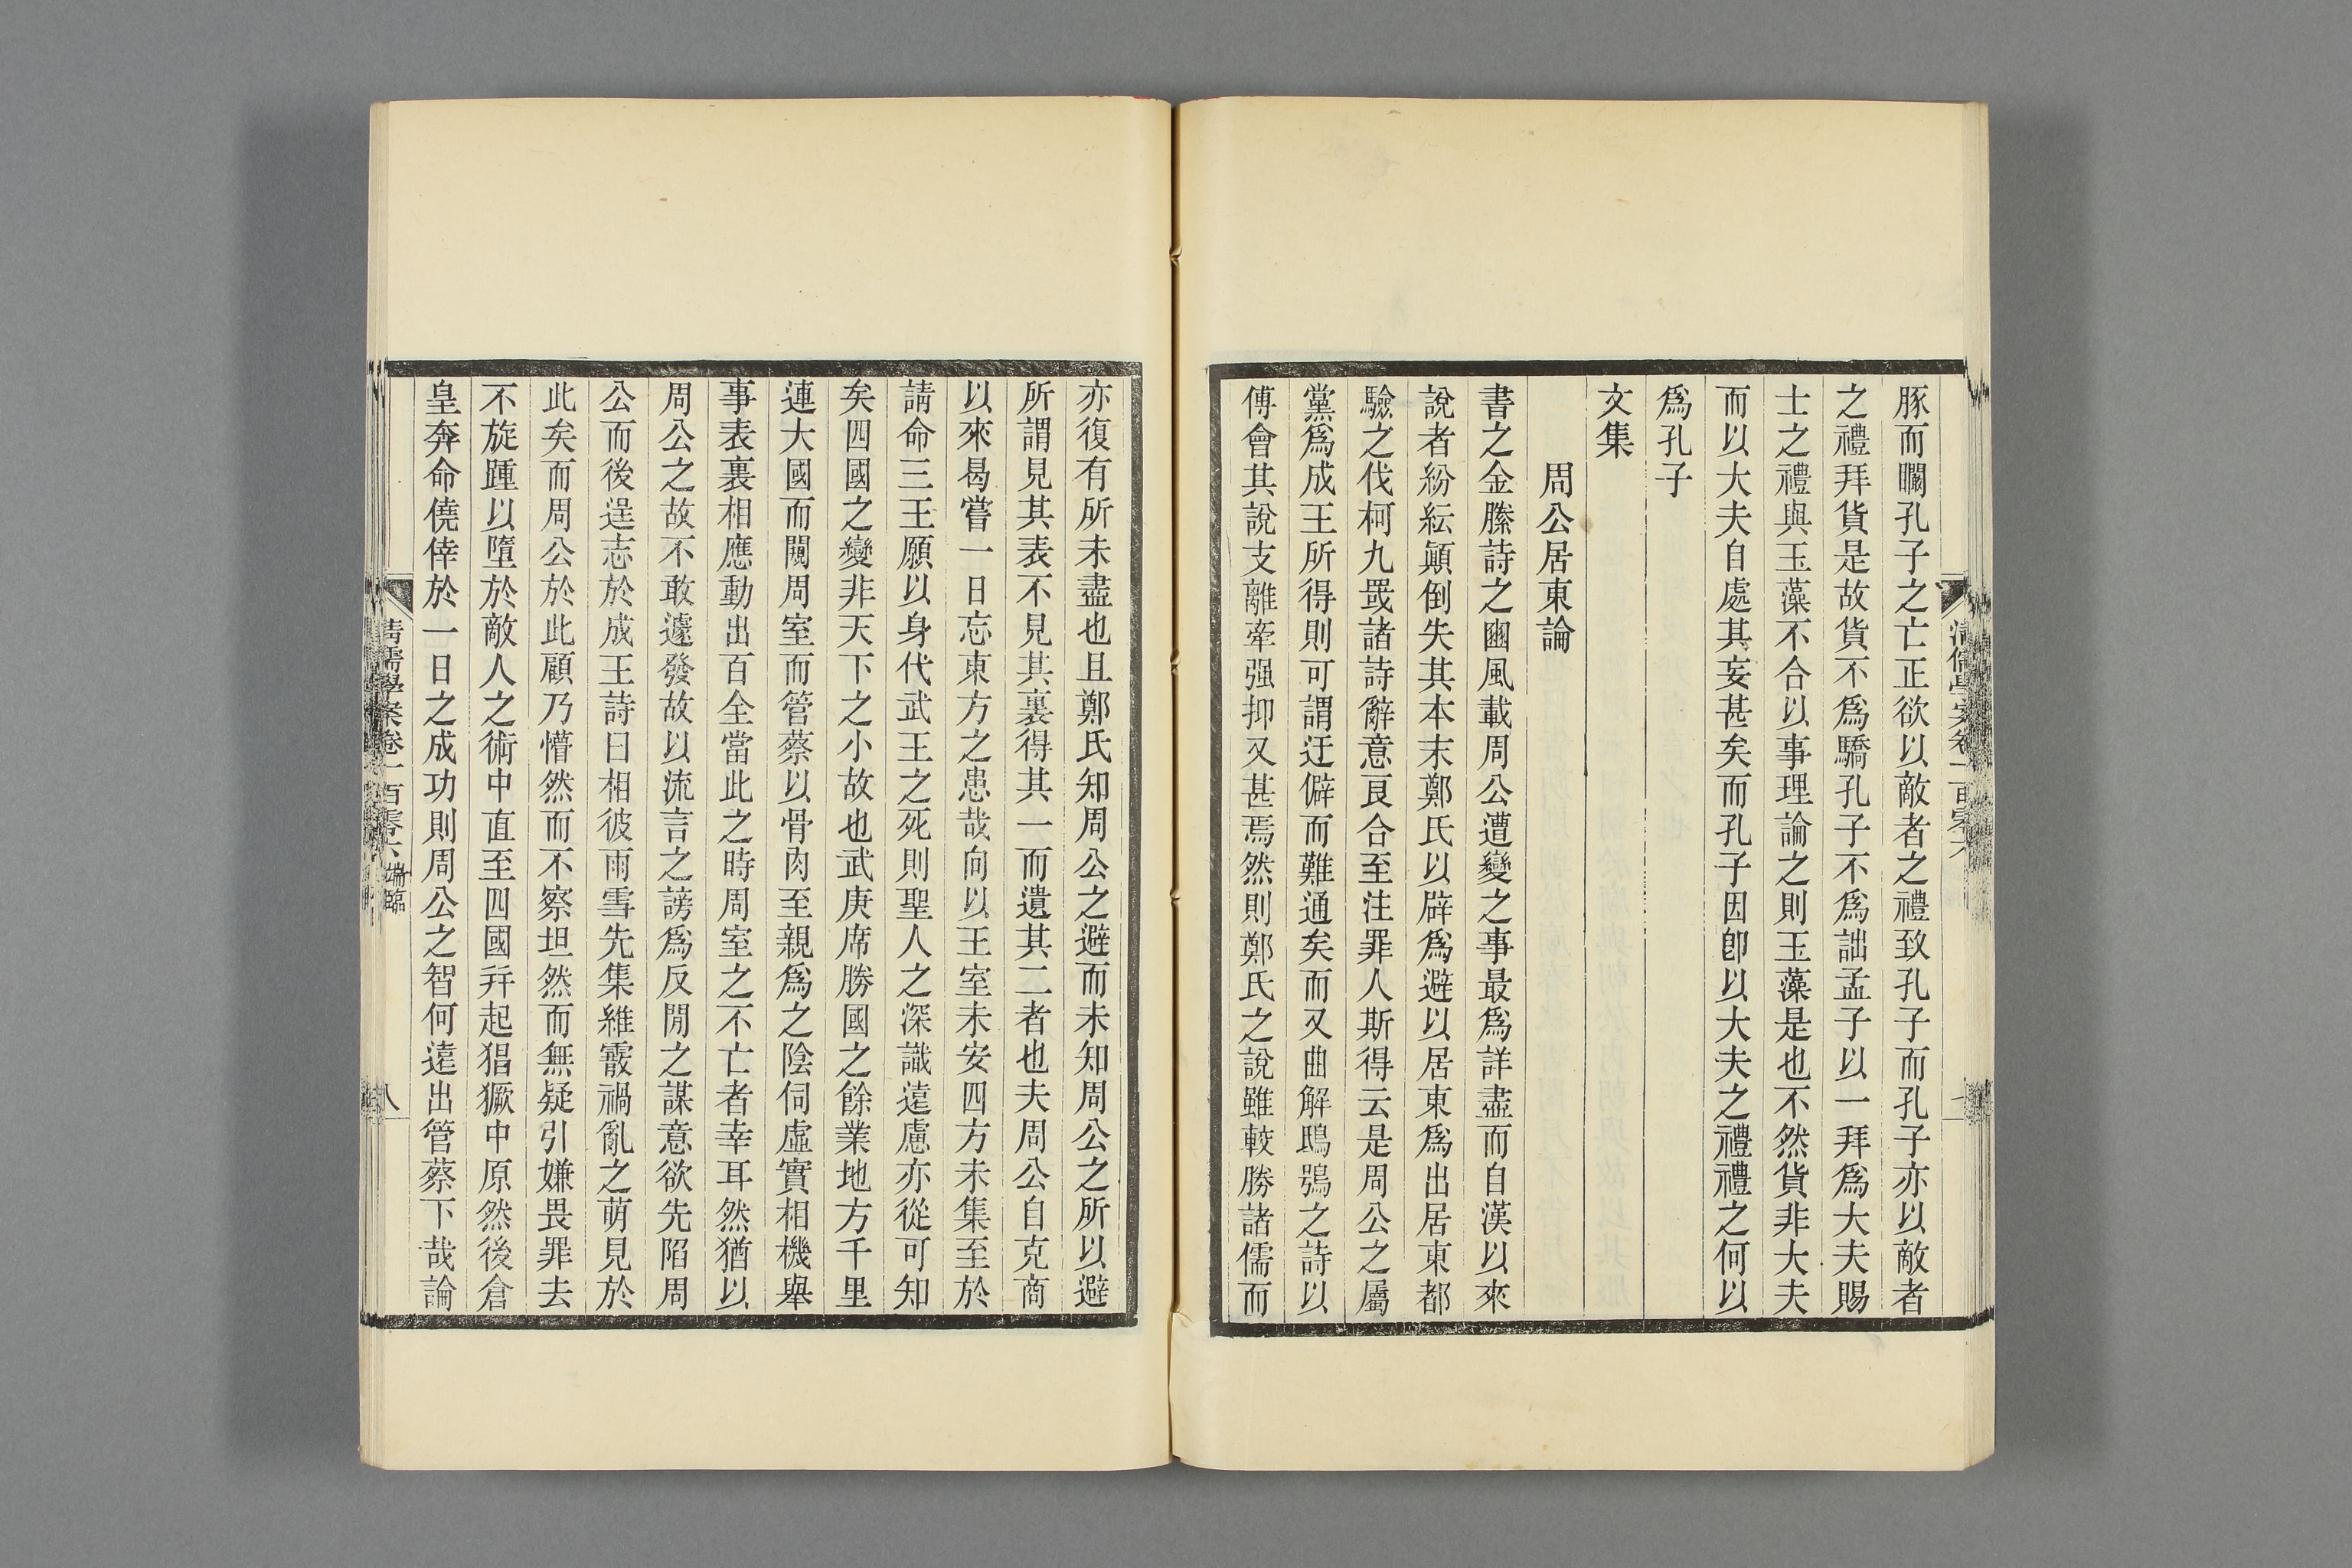 豚而矙孔子之亡正欲以敵者之禮致孔子而孔子亦以敵者
之禮拜貨是故貨不爲驕孔子不爲詘孟子以一拜爲大夫賜
士之禮與玉藻不合以事理論之則玉藻是也不然貨非大夫
而以大夫自處其妄甚矣而孔子因卽以大夫之禮禮之何以
爲孔子
文集
周公居東論
書之金縢詩之豳風載周公遭變之事最爲詳盡而自漢以來
說者紛紜顚倒失其本末鄭氏以辟爲避以居東爲出居東都
驗之伐柯九罭諸詩辭意亙合至注罪人斯得云是周公之屬
黨爲成王所得則可謂迂僻而難通矣而又曲解鴟鴞之詩以
傅會其說支離牽强抑又甚焉然則鄭氏之說雖較勝諸儒而
亦復有所未盡也且鄭氏知周公之避而未知周公之所以避
所謂見其表不見其裏得其一而遺其二者也夫周公自克商
以來曷嘗一日忘東方之患哉向以王室未安四方未集至於
請命三王願以身代武王之死則聖人之深識遠慮亦從可知
矣四國之變非天下之小故也武庚席勝國之餘業地方千里
連大國而闚周室而管蔡以骨肉至親爲之陰伺虛實相機舉
事表裏相應動出百全當此之時周室之不亡者幸耳然猶以
周公之故不敢遽發故以流言之謗爲反閒之謀意欲先陷周
公而後逞志於成王詩曰相彼雨雪先集維霰禍亂之萌見於
此矣而周公於此顧乃懵然而不察坦然而無疑引嫌畏罪去
不旋踵以墮於敵人之術中直至四國幷起猖獗中原然後倉
皇奔命僥倖於一日之成功則周公之智何遠出管蔡下哉論
清儒學案卷一百零六 端臨
八